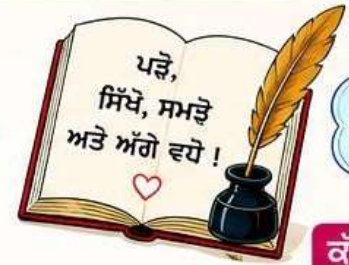 ਪੜੋ,
ਸਿੱਖੋ, ਸਮਝੋ
ਅਤੇ ਅੱਗੇ ਵਧੋ !